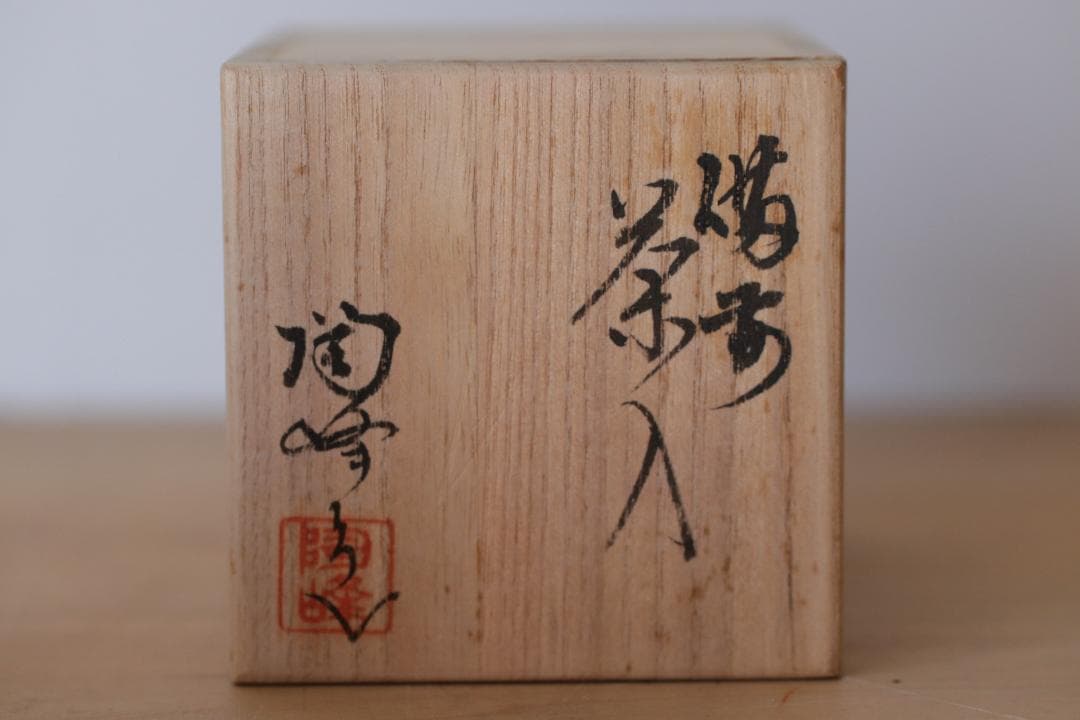 備前
茶入
陶峰
陶峰